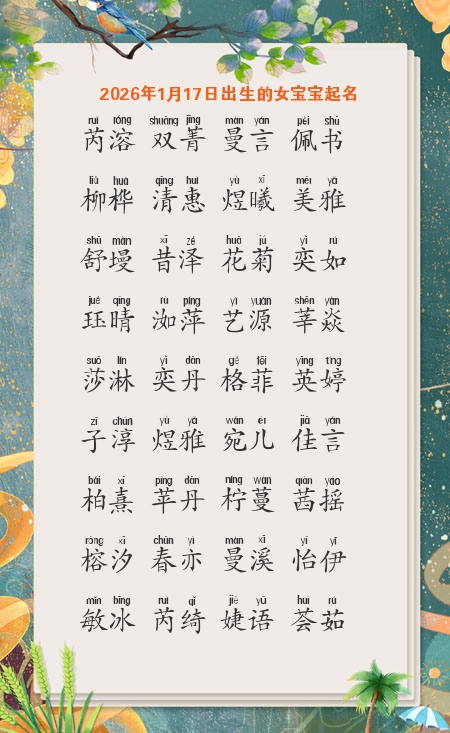 2026年1月17日出生的女宝宝起名
ruì róng shuāng jīng màn yán pèi shū
芮溶 双菁 曼言 佩书
liǔ huà qīng huì yù xī měi yǎ
柳桦 清惠 煜曦 美雅
shū màn xī zé huā jú yì rú
舒墁 昔泽 花菊 奕如
jué qíng rù píng yì yuán shēn yàn
珏晴 洳萍 艺源 莘焱
suō lín yì dān gé fēi yīng tíng
莎淋 奕丹 格菲 英婷
zǐ chún yù yǎ wǎn ér jiā yán
子淳 煜雅 宛儿 佳言
bǎi xī píng dān níng wàn qiàn yáo
柏熹 苹丹 柠蔓 茜摇
róng xī chūn yì màn xī yí yī
榕汐 春亦 曼溪 怡伊
mǐn bīng ruì qǐ jié yǔ huì rú
敏冰 芮绮 婕语 荟茹